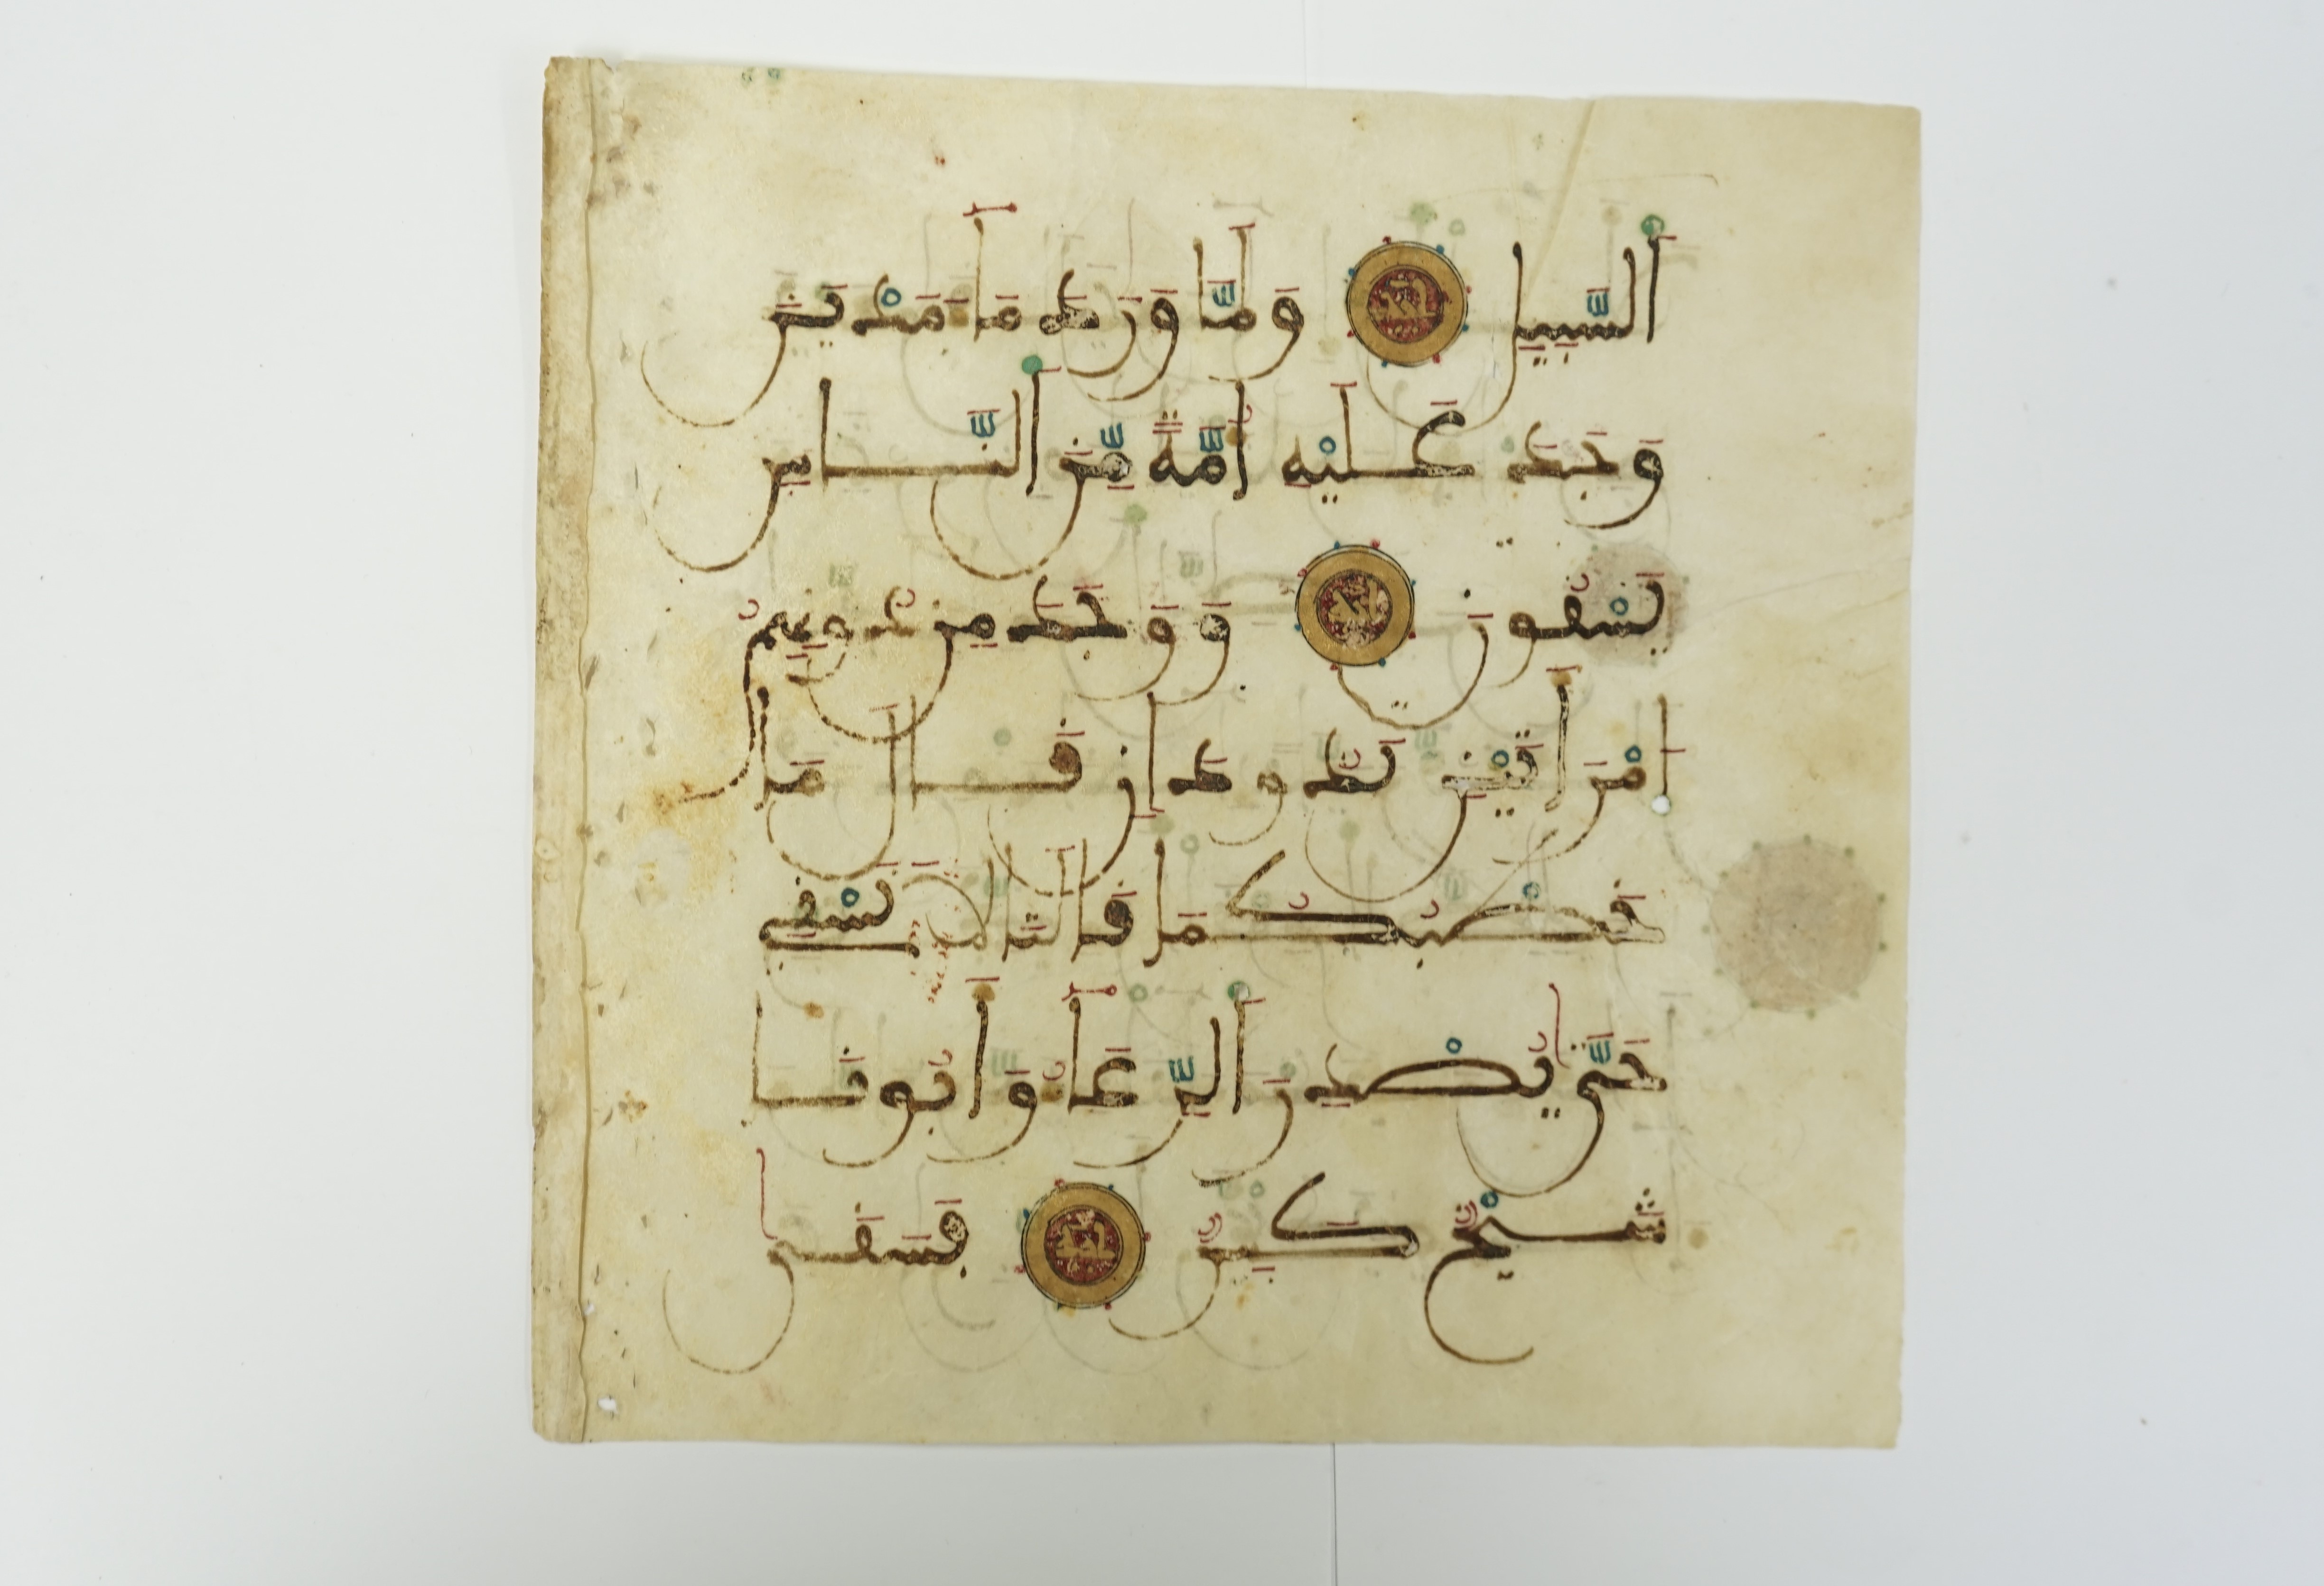 اَ۬لسَّبِيلِ وَلَمَّا وَرَدَ مَآءَ مَدْيَنَ
وَجَدَ عَلَيْهِ أُمَّةً مِّنَ اَ۬لنَّاسِ
يَسْقُونَ وَوَجَدَ مِن دُونِهِمُ
اِمْرَأَتَيْنِ تَذُودَانِ قَالَ مَا
خَطْبُكُمَا قَالَتَا لَا نَسْقِي
حَتَّىٰ يُصْدِرَ اَ۬لرِّعَآءُ وَأَبُونَا
شَيْخٌ كَبِيرٌ فَسَقَىٰ